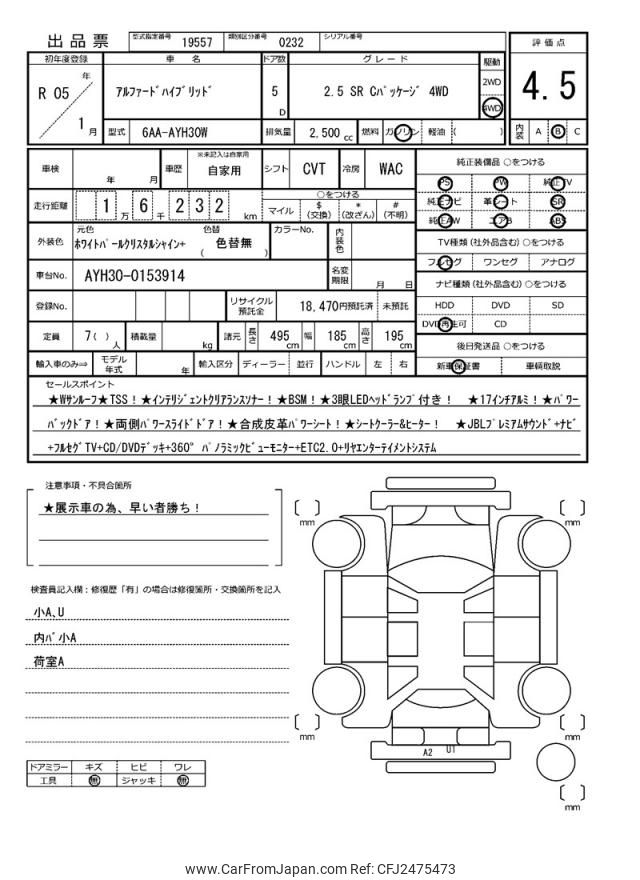 出品票 型式指定番号 19557 類別区分番号 0232 シリアル番号
初年度登録 車名 ドア数 グレード 駆動 評価点
R 05 年 1 月 アルファードハイブリッド 5 D 2.5 SR Cパッケージ 4WD 2WD 4WD 4.5
型式 6AA-AYH30W 排気量 2,500 cc 燃料 ガソリン 軽油 ( ) 内装 A B C
車検 年 月 車歴 ※未記入は自家用 自家用 シフト CVT 冷房 WAC 純正装備品 ○をつける
PS PW 純正TV
走行距離 1 万 6 千 2 3 2 km ○をつける 純正ナビ 革シート SR
マイル $ (交換) * (改ざん) # (不明) 純正AW エアB ABS
外装色 元色 ホワイトパールクリスタルシャイン+ 色替 ( 色替無 ) カラーNo. 内装色 TV種類 (社外品含む) ○をつける
フルセグ ワンセグ アナログ
車台No. AYH30-0153914 名変期限 月 日 ナビ種類 (社外品含む) ○をつける
登録No. リサイクル預託金 18,470円預託済 未預託 HDD DVD SD
DVD再生可 CD
定員 7( ) 人 積載量 kg 諸元 長さ 495 cm 幅 185 cm 高さ 195 cm 後日発送品 ○をつける
輸入車のみ⇒ モデル年式 年 輸入区分 ディーラー 並行 ハンドル 左 右 新車保証書 車輌取説
セールスポイント
★Wサンルーフ★TSS！★インテリジェントクリアランスソナー！★BSM！★3眼LEDヘッドランプ付き！ ★17インチアルミ！★パワー
バックドア！★両側パワースライドドア！★合成皮革パワーシート！★シートクーラー&ヒーター！ ★JBLプレミアムサウンド+ナビ
+フルセグTV+CD/DVDデッキ+360° パノラミックビューモニター+ETC2.0+リヤエンターテイメントシステム
注意事項・不具合箇所
★展示車の為、早い者勝ち！
検査員記入欄：修復歴「有」の場合は修復箇所・交換箇所を記入
小A、U
内バ小A
荷室A
mm
mm
mm
mm
mm
A2 U1
ドアミラー キズ ヒビ ワレ
工具 無 ジャッキ 無
www.CarFromJapan.com Ref: CFJ2475473